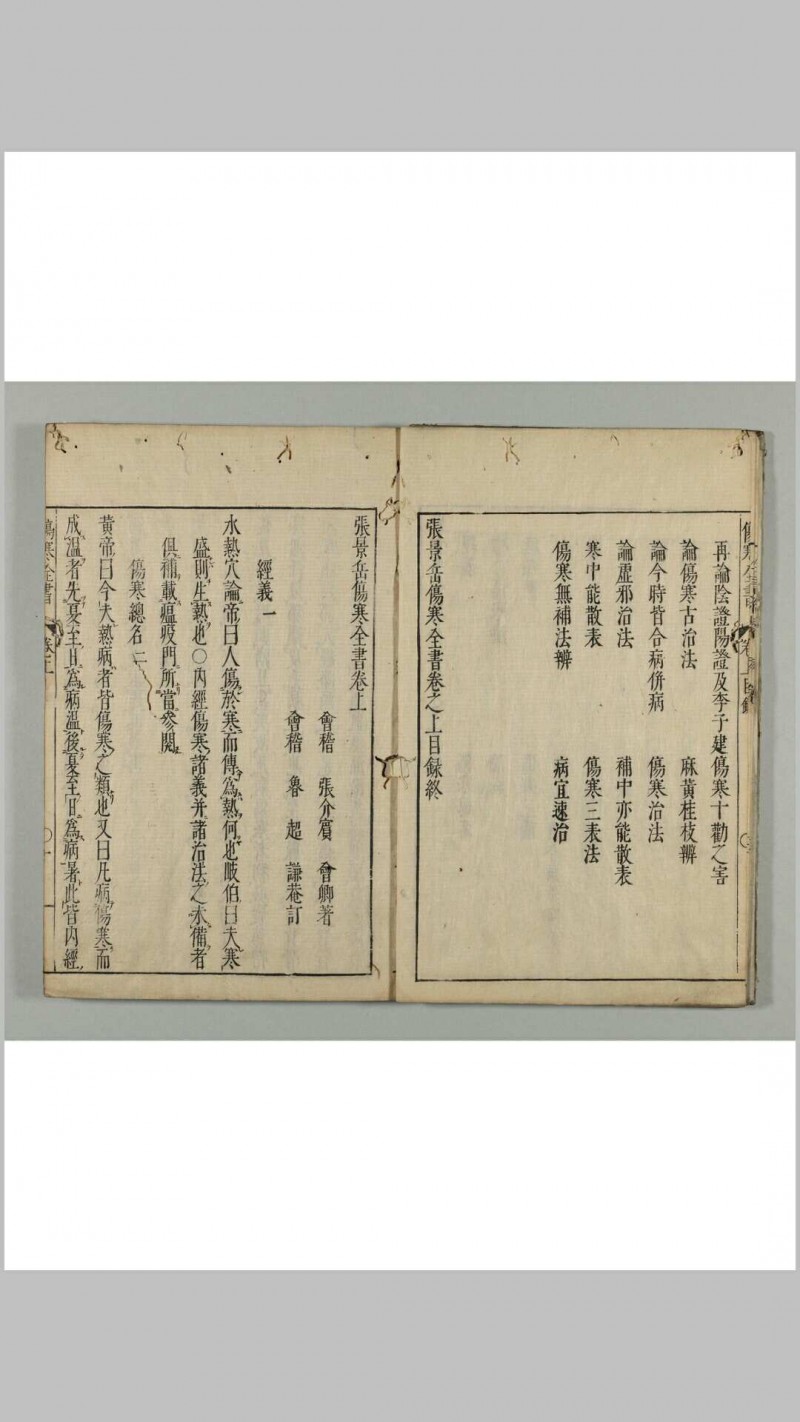 再論陰證陽證及李子建傷寒十勸之害
論傷寒古治法　麻黃桂枝辨
論今時皆合病併病　傷寒治法
論虛邪治法　補中亦能散表
寒中能散表　傷寒三表法
傷寒無補法辨　病宜速治
張景岳傷寒全書卷之上目録終
張景岳傷寒全書卷上
會稽　張介賓　會卿著
會稽　魯　超　謙菴訂
經義一
水熱穴論帝曰人傷於寒而傳為熱何也岐伯曰夫寒
盛則生熱也〇內經傷寒諸義并諸治法之未備者
俱補載瘟疫門所當參閱
傷寒總名二
黃帝曰今夫熱病者皆傷寒之類也又曰凡病傷寒而
成溫者先夏至日為病溫後夏至日為病暑此皆內經
傷寒全書